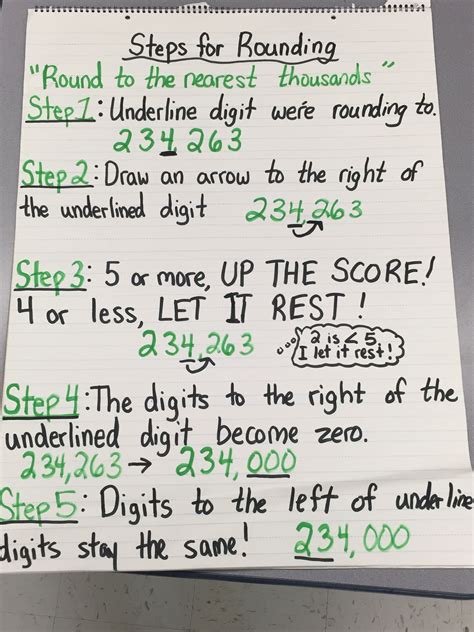 Steps for Rounding
"Round to the nearest thousands"
Step 1: Underline digit we're rounding to.
234,263
Step 2: Draw an arrow to the right of
the underlined digit 234,263
Step 3: 5 or more, UP THE SCORE!
4 or less, LET IT REST!
234,263
2 is < 5
I let it rest!
Step 4: The digits to the right of the
underlined digit become zero.
234,263 → 234,000
Step 5: Digits to the left of underline
digits stay the same! 234,000